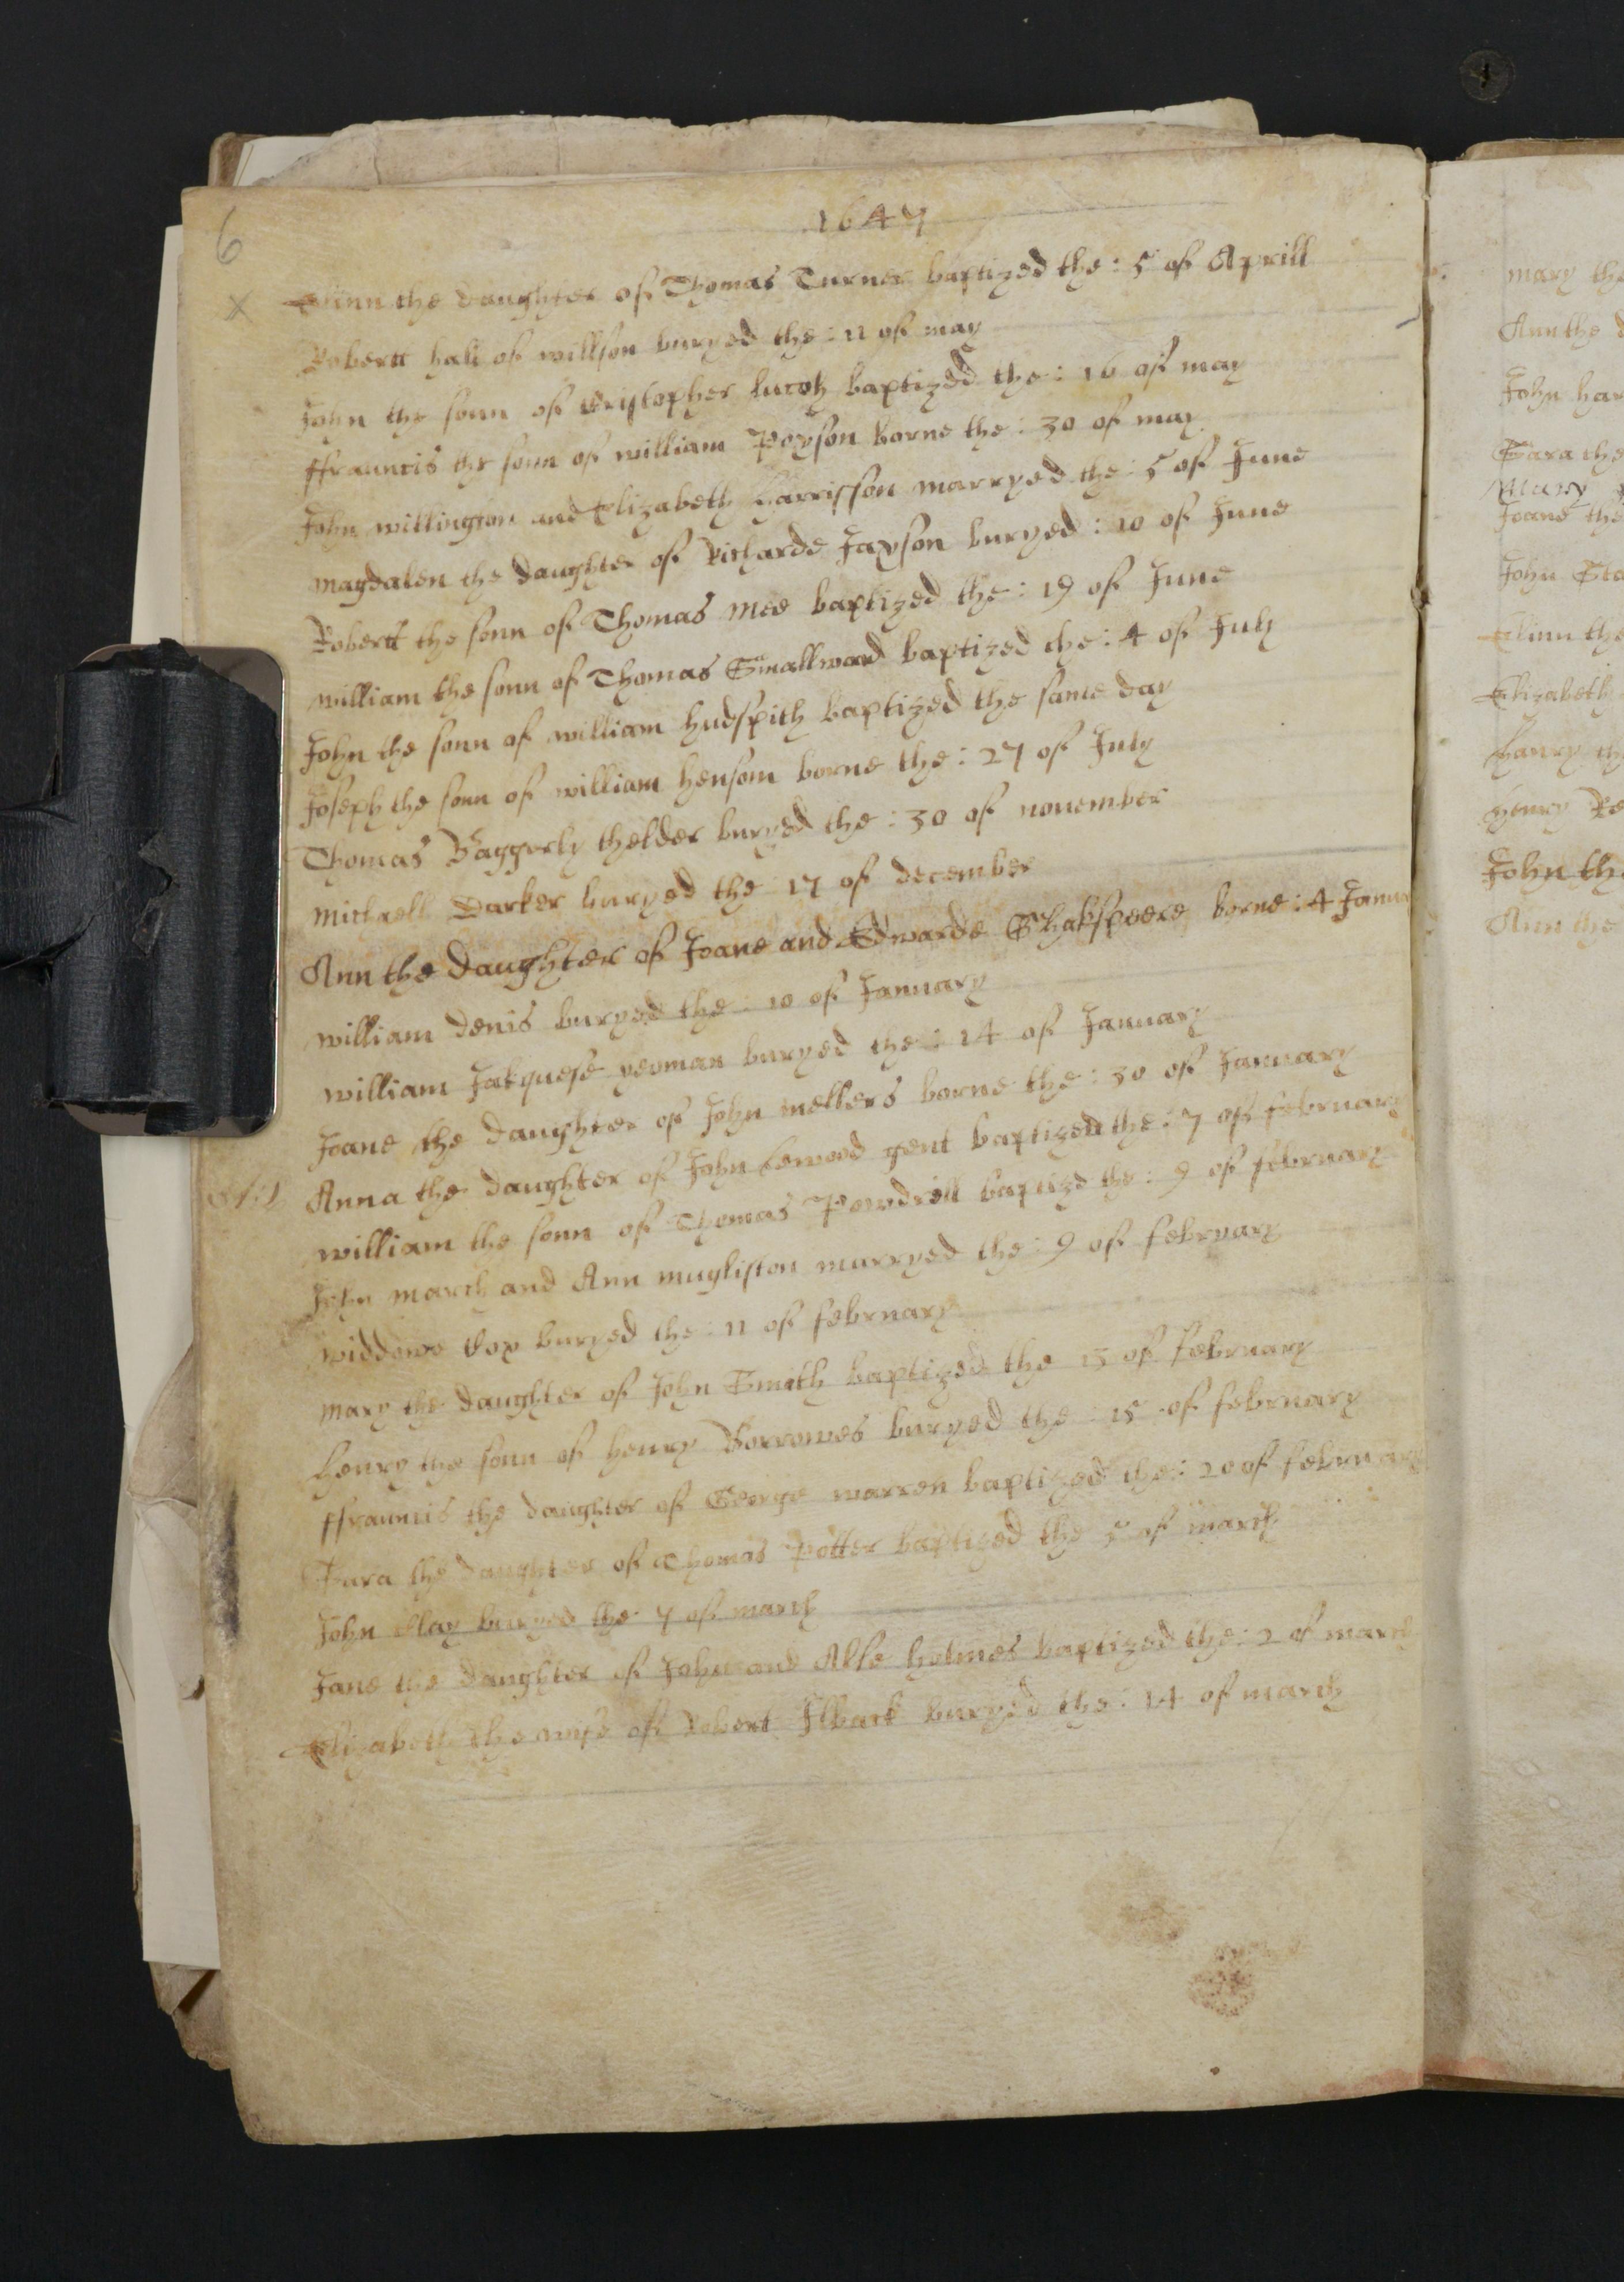 1647
6
x
Elinn the daughter of Thomas Turner baptized the : 5 of Aprill
Robertt hall of willson buryed the : 11 of may
John the sonn of Cristopher baptized the : 16 of may
ffrauncis the sonn of william Poyson borne the : 30 of may
John willington and Elizabeth Harrisson marryed the : 5 of June
magdalen the daughter of Richarde Jaxson buryed : 10 of June
Robertt the sonn of Thomas mee baptized the : 19 of June
william the sonn of Thomas Smallward baptized the : 4 of July
John the sonn of william hudspith baptized the same day
Joseph the sonn of william hensom borne the : 27 of July
Thomas Baggerly thelder buryed the : 30 of nouember
michaell Darker buryed the 17 of december
Ann the daughter of Joane and Edwarde Shakspeere borne : 4 Janua
william denis buryed the : 10 of January
william Jakquese yeoman buryed the : 14 of January
Joane the daughter of John mellers borne the : 30 of January
Anna the daughter of John gent baptized the : 7 of february
william the sonn of Thomas Powdrell baptizd the : 9 of february
John march and Ann mugliston marryed the : 9 of february
widdowe Cox buryed the : 11 of february
mary the daughter of John Smith baptized the 13 of february
henry the sonn of henry Borrowes buryed the : 15 of february
ffrauncis the daughter of George warren baptized the : 20 of february
Sara the daughter of Thomas Potter baptized the 5 of march
John Clay buryed the 7 of march
Jane the daughter of John and Alse holmes baptized the : 2 of march
Elizabeth the wife of Robert Ilback buryed the : 14 of march
mary the
Ann the d
John har
Sara the
Mary
Joane the
John Sta
Elinn the
Elizabeth
henry th
henry Re
John the
Ann the